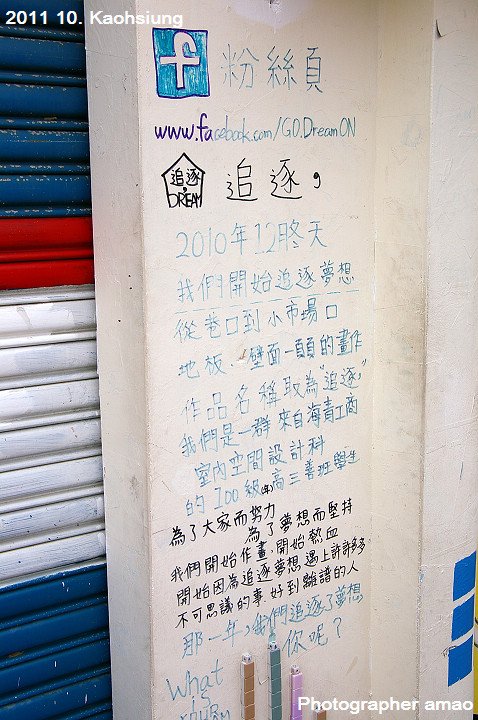 2011 10. Kaohsiung
f 粉絲頁
www.facebook.com/GO.DreamON
追逐,
DREAM
追逐,
2010年12月冬天
我們開始追逐夢想
從巷口到小市場口
地板、壁面一頭頭的畫作
作品名稱取為"追逐,"
我們是一群來自海青工商
室內空間設計科
的100級(年)高三善班學生
為了大家而努力
為了夢想而堅持
我們開始作畫.開始熱血
開始因為追逐夢想遇上許許多多
不可思議的事好到離譜的人
那一年,我們追逐了夢想
你呢?
What
Photographer amao